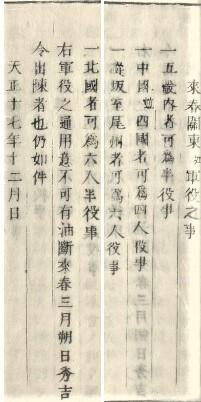 來春關東江軍役之事
一五畿内者可為半役事
一中國並四國者可為四人役事
一從坂至尾州者可為六人役事
一北國者可為六人半役事
右軍役之通用意不可有油断來春三月朔日秀吉
令出陳者也仍如件
天正十七年十二月日